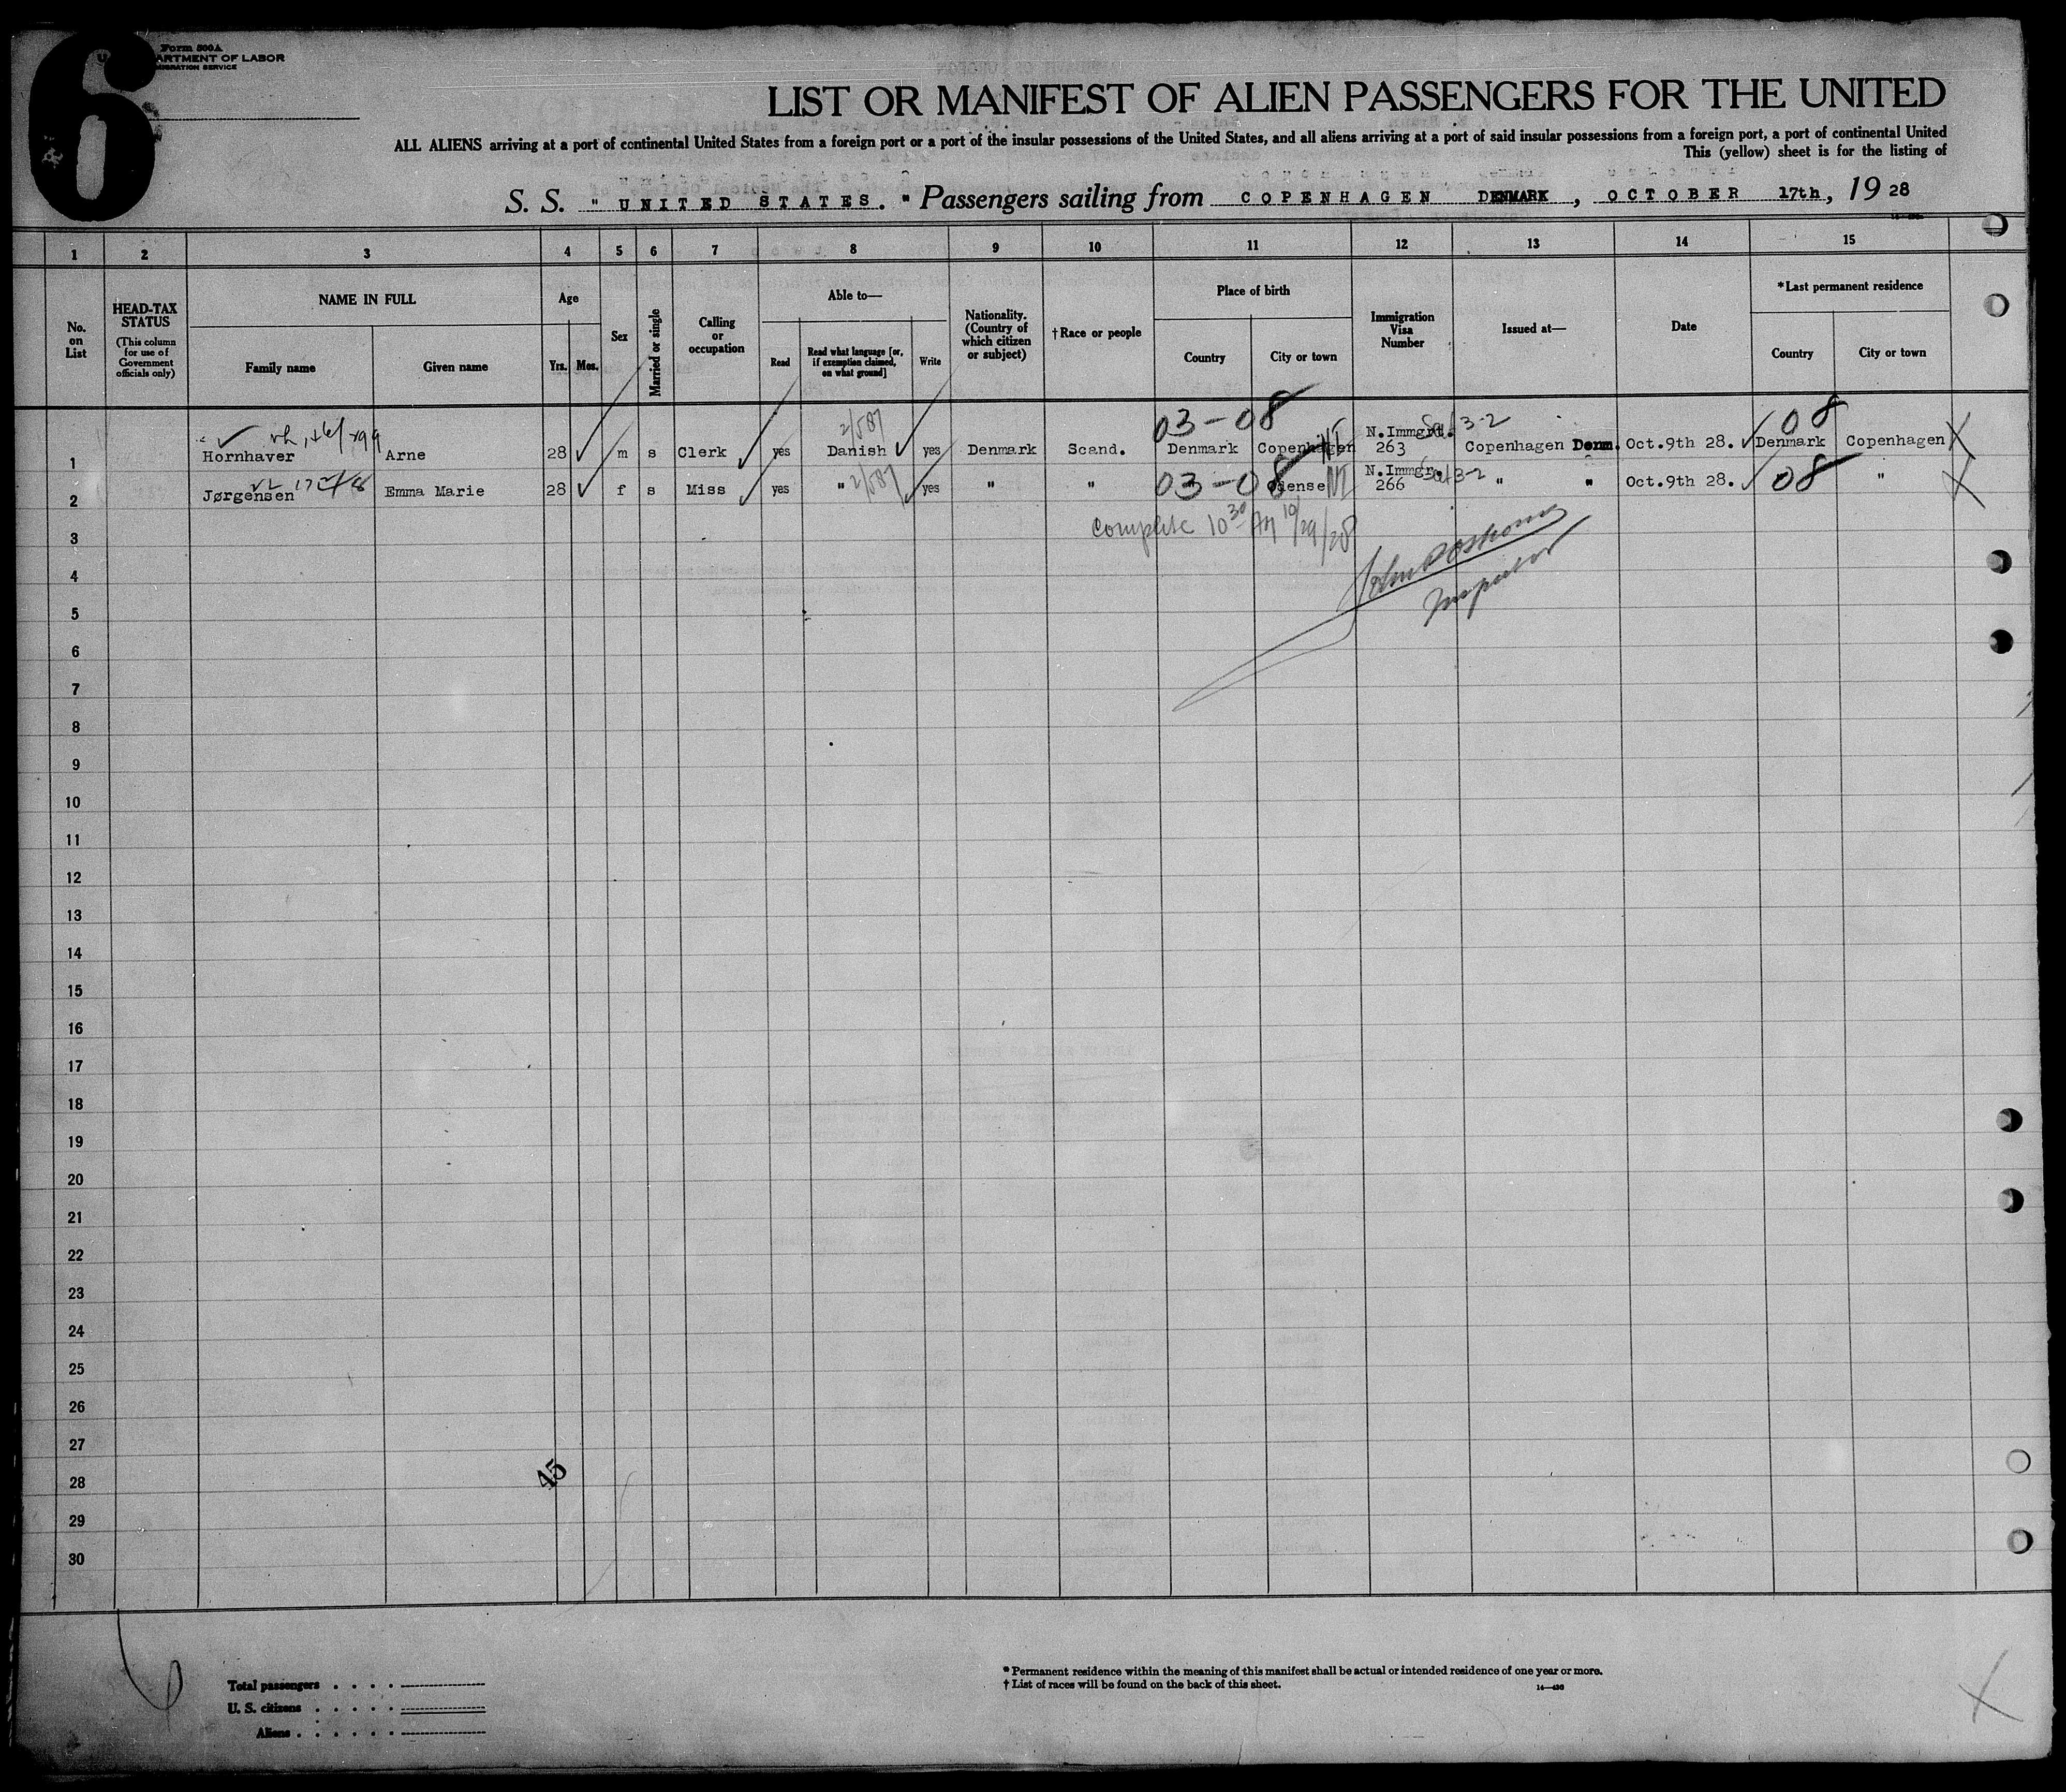 6
Form 500A
DEPARTMENT OF LABOR
IMMIGRATION SERVICE
LIST OR MANIFEST OF ALIEN PASSENGERS FOR THE UNITED
ALL ALIENS arriving at a port of continental United States from a foreign port or a port of the insular possessions of the United States, and all aliens arriving at a port of said insular possessions from a foreign port, a port of continental United
This (yellow) sheet is for the listing of
S. S. "UNITED STATES." Passengers sailing from COPENHAGEN DENMARK, OCTOBER 17th, 1928
1 2 3 4 5 6 7 8 9 10 11 12 13 14 15
No. on List
HEAD-TAX STATUS
(This column for use of Government officials only)
NAME IN FULL
Family name Given name
Age
Yrs. Mos.
Sex
Married or single
Calling or occupation
Able to—
Read Read what language [or, if exemption claimed, on what ground] Write
Nationality. (Country of which citizen or subject)
†Race or people
Place of birth
Country City or town
Immigration Visa Number
Issued at—
Date
*Last permanent residence
Country City or town
03-08 3-2 08
2/587
1 Hornhaver Arne 28 m s Clerk yes Danish yes Denmark Scand. Denmark Copenhagen N.Immgrt. 263 Copenhagen Denm. Oct.9th 28. Denmark Copenhagen X
2 Jørgensen Emma Marie 28 f s Miss yes " 2/587 yes " " 03-08 Odense N.Immgr. 266 3-2 " " Oct.9th 28. 08 " X
3
complete 10 30 AM 10/29/28
4
Inspector
5
6
7
8
9
10
11
12
13
14
15
16
17
18
19
20
21
22
23
24
25
26
27
28
45
29
30
Total passengers
U. S. citizens
Aliens
* Permanent residence within the meaning of this manifest shall be actual or intended residence of one year or more.
† List of races will be found on the back of this sheet.
X